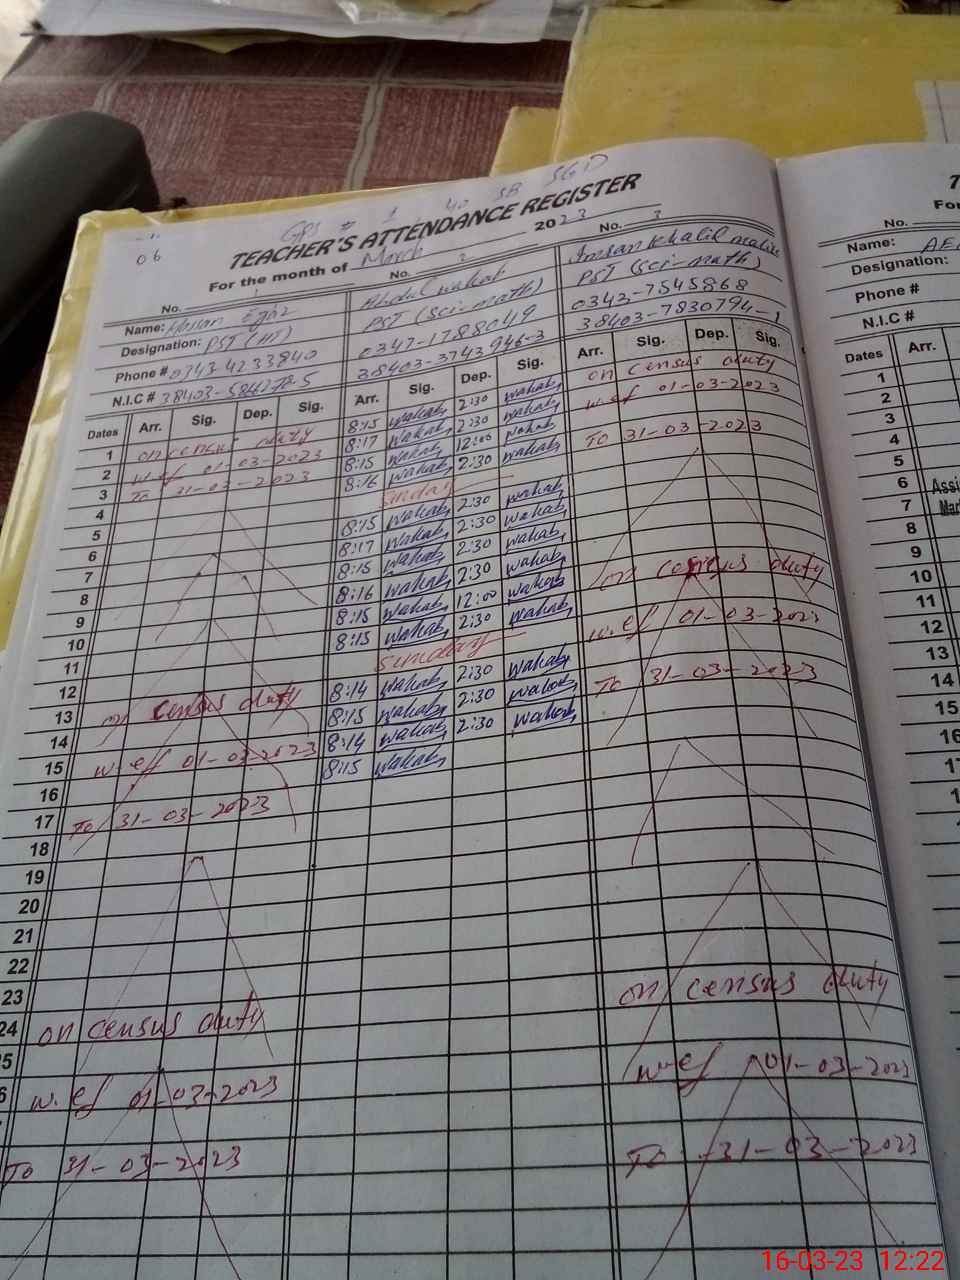 06
GPS # 1 40 SB SGD
TEACHER'S ATTENDANCE REGISTER
For the month of March 2023
No. 1
Name: Hassan Ejaz
Designation: PST (HT)
Phone # 0343-4233840
N.I.C # 38403-
No. 2
Abdul wahab
PST (sci-math)
0347-1788049
38403-3743946-3
No. 3
Khalil
PST (sci-math)
0343-7545868
38403-7830794-1
Dates Arr. Sig. Dep. Sig. Arr. Sig. Dep. Sig. Arr. Sig. Dep. Sig.
1 on census duty 8:15 wahab 2:30 wahab on census duty
2 w.ef 01-03-2023 8:17 wahab 2:30 wahab w.ef 01-03-2023
3 To 31-03-2023 8:15 wahab 12:00 wahab
4 8:16 wahab 2:30 wahab To 31-03-2023
5 Sunday
6 8:15 wahab 2:30 wahab
7 8:17 wahab 2:30 wahab
8 8:15 wahab 2:30 wahab
9 8:16 wahab 2:30 wahab on census duty
10 8:15 wahab 12:00 wahab
11 8:15 wahab 2:30 wahab w.ef 01-03-2023
12 Sunday
13 on census duty 8:14 wahab 2:30 wahab To 31-03-2023
14 8:15 wahab 2:30 wahab
15 w.ef 01-03-2023 8:14 wahab 2:30 wahab
16 8:15 wahab
17 To 31-03-2023
18
19
20
21
22
23 on census duty
24 on census duty
5
6 w.ef 01-03-2023 w.ef 01-03-2023
To 31-03-2023 To 31-03-2023
7
For
No.
Name:
Designation:
Phone #
N.I.C #
Dates Arr.
1
2
3
4
5
6
7
8
9
10
11
12
13
14
15
16
16-03-23 12:22